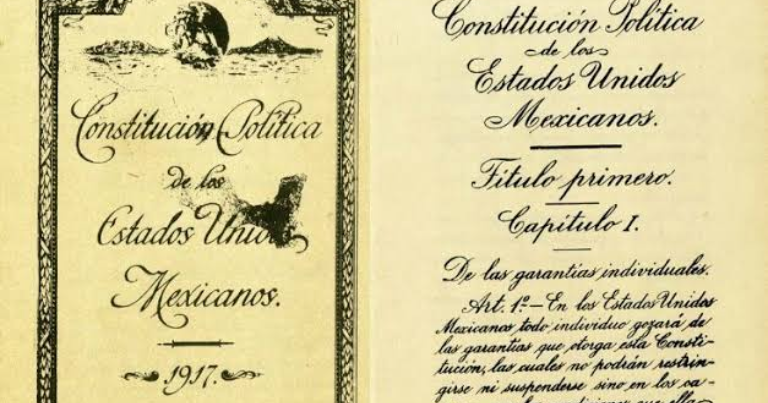 Constitución Política
de los
Estados Unidos
Mexicanos.
1917.
Constitución Política
de los
Estados Unidos
Mexicanos.
Título primero.
Capítulo I.
De las garantías individuales.
Art. 1º.—En los Estados Unidos
Mexicanos todo individuo gozará de
las garantías que otorga esta Consti-
tución, las cuales no podrán restrin-
girse ni suspenderse sino en los ca-